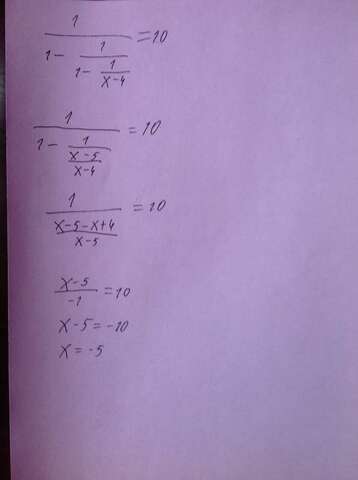 1/(1 - 1/(1 - 1/(x-4))) = 10
1/(1 - 1/((x-5)/(x-4))) = 10
1/((x-5-x+4)/(x-5)) = 10
(x-5)/(-1) = 10
x-5 = -10
x = -5